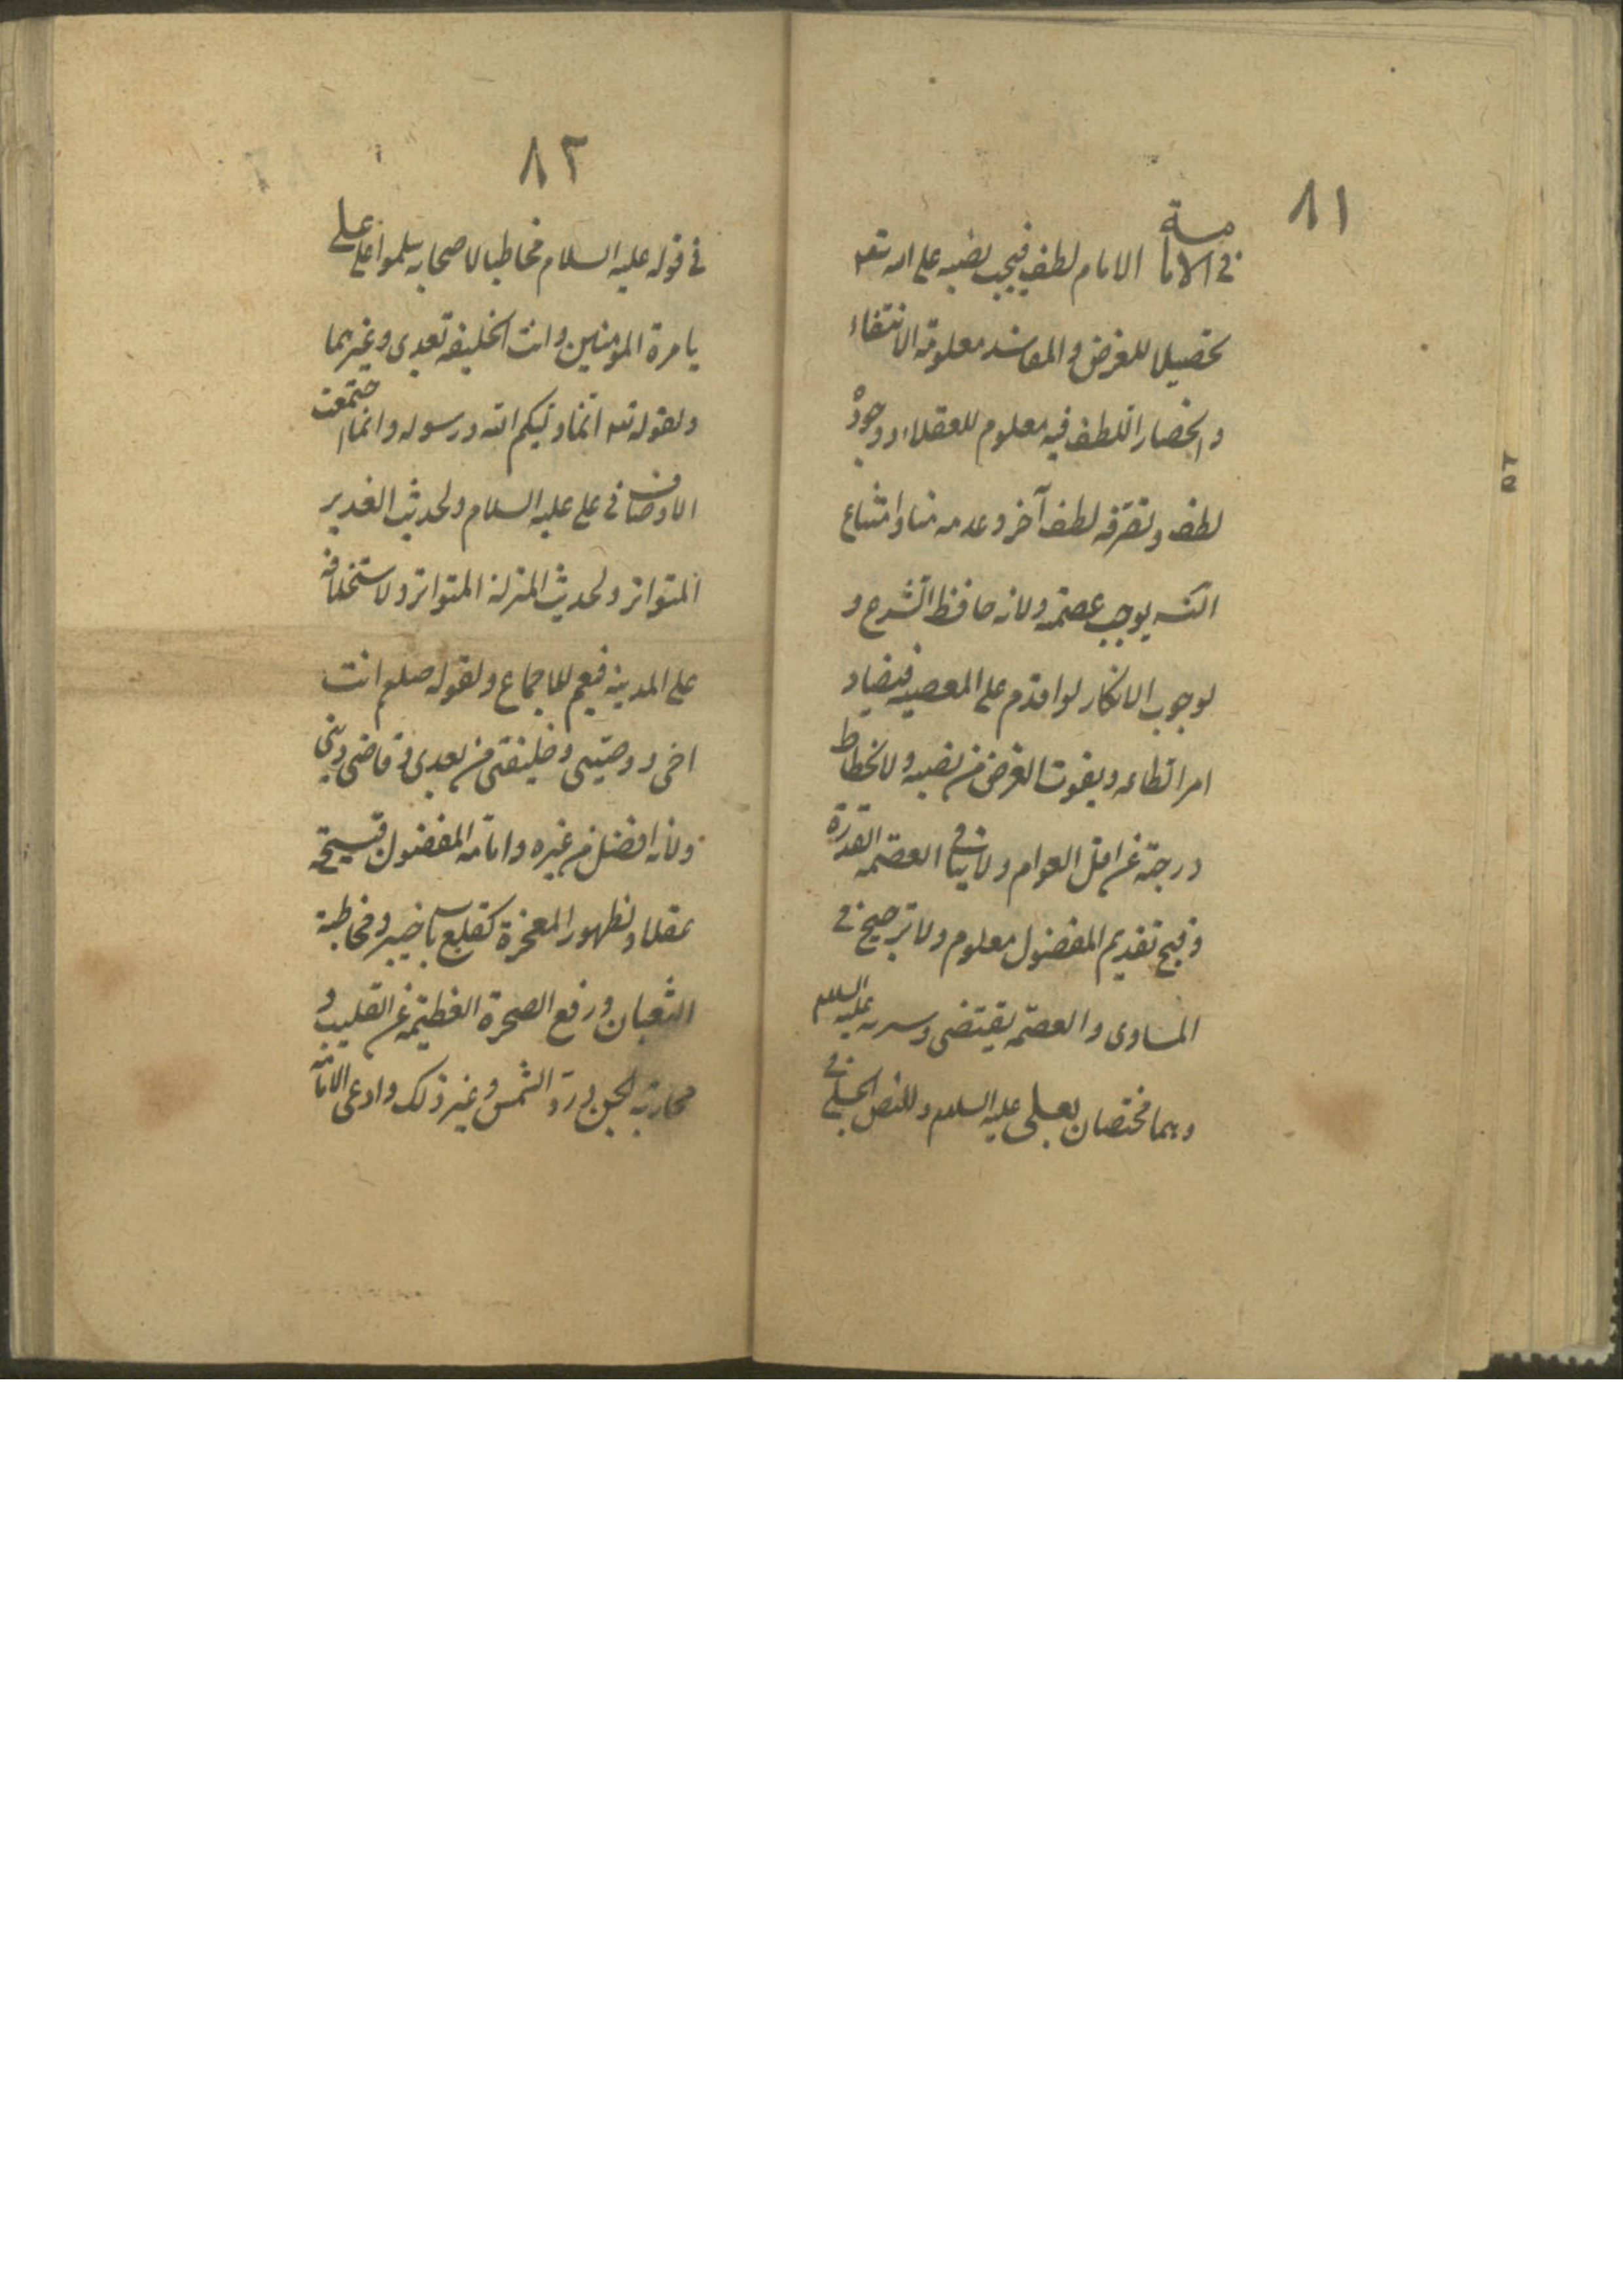 ٨١
فى الامامة الامام لطف فيجب نصبه على الله تعه
تحصيلا للغرض والمفاسد معلومة الانتفاء
وانحصار اللطف فيه معلوم للعقلاء ووجوده
لطف وتصرفه لطف آخر وعدمه منا وامتناع
التسه يوجب عصمته ولانه حافظ الشرع و
لوجوب الانكار لو اقدم على المعصية فيضاد
امر الطاعه ويفوت الغرض من نصبه ولانحطاط
درجته عن اقل العوام ولا ينافى العصمه القدرة
وقبح تقديم المفضول معلوم ولا ترجيح فى
المساوى والعصمه يقتضى وسيرته عليه السلام
وهما مختصان بعلى عليه السلام وللنص الجلى فى
٨٢
فى قوله عليه السلام مخاطبا لاصحابه سلموا على على
يامرة المؤمنين وانت الخليفه تعدى وغيرهما
ولقوله تعه انما وليكم الله ورسوله وانما اجتمعت
الاوصاف فى على عليه السلام ولحديث الغدير
المتواتر ولحديث المنزلة المتواتر ولاستخلافه
على المدينه فيعم للاجماع ولقوله صلعم انت
اخى ووصيى وخليفتى من بعدى وقاضى دينى
ولانه افضل من غيره وامامة المفضول قبيحة
عقلا ولظهور المعجزة كقلع باب خيبر ومخاطبة
الثعبان ورفع الصخرة العظيمة عن القليب و
محاربة الجن ورد الشمس وغير ذلك وادعى الامامة